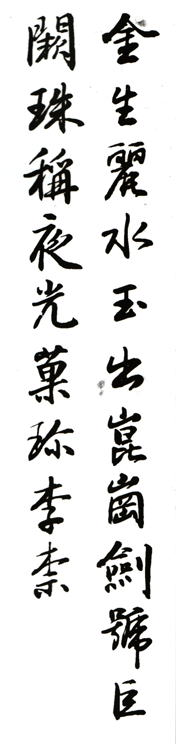 金生麗水玉出崑崗劍號巨
闕珠稱夜光菓珎李柰